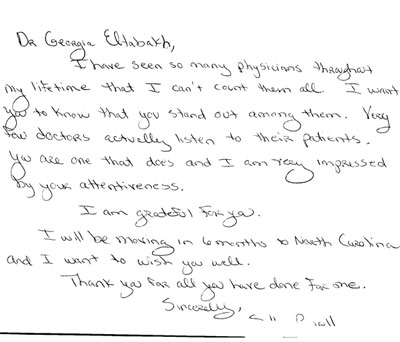 Dr Georgia Eltabakh,
I have seen so many physicians throughout
my lifetime that I can't count them all. I want
you to know that you stand out among them. Very
few doctors actually listen to their patients.
You are one that does and I am very impressed
by your attentiveness.
I am grateful for you.
I will be moving in 6 months to North Carolina
and I want to wish you well.
Thank you for all you have done for me.
Sincerely,